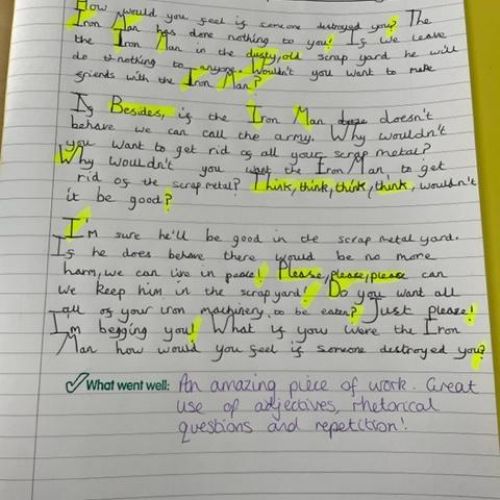 How would you feel if someone destroyed you? The
Iron Man has done nothing to you! If we leave
the Iron Man in the dusty, old scrap yard he will
do nothing to anyone. Wouldn't you want to make
friends with the Iron Man?
If Besides, if the Iron Man doesn't
behave we can call the army. Why wouldn't
you want to get rid of all your scrap metal?
Why wouldn't you want the Iron Man, to get
rid of the scrap metal? Think, think, think, think, wouldn't
it be good?
I'm sure he'll be good in the scrap metal yard.
If he does behave there would be no more
harm, we can live in peace! Please, please, please can
we keep him in the scrap yard! Do you want all
all of your iron machinery, to be eaten? Just please!
I'm begging you! What if you were the Iron
Man how would you feel if someone destroyed you?
What went well: An amazing piece of work. Great
use of adjectives, rhetorical
questions and repetition!